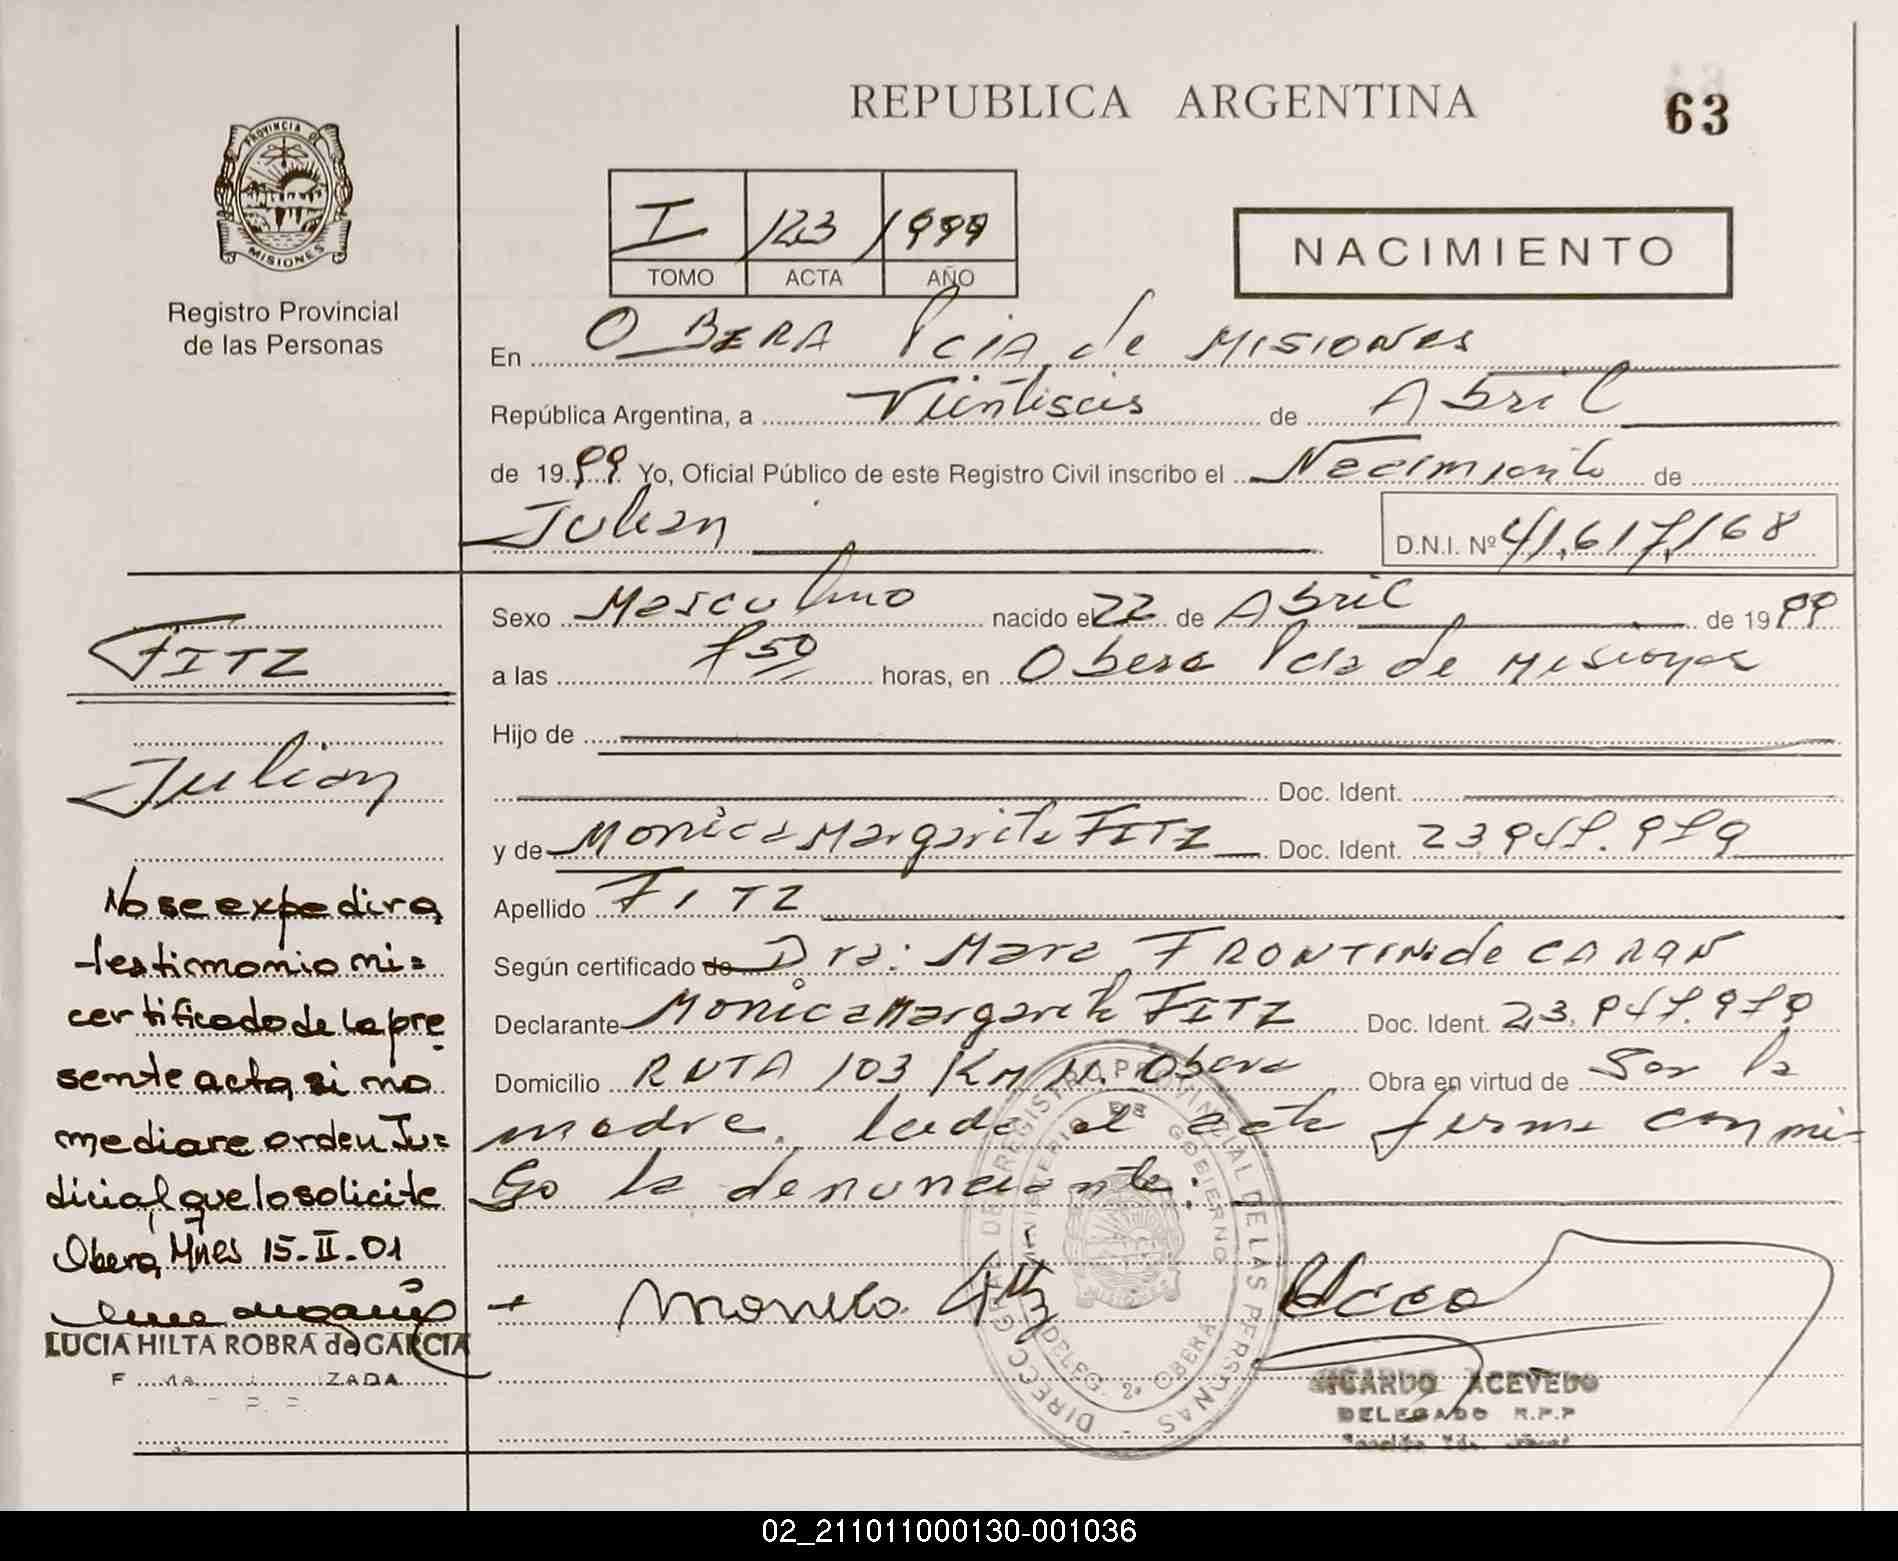 REPUBLICA ARGENTINA
63
PROVINCIA DE
MISIONES
Registro Provincial
de las Personas
I 123 1999
TOMO ACTA AÑO
NACIMIENTO
En OBERA Pcia de MISIONES
República Argentina, a Vientiseis de Abril
de 1999 Yo, Oficial Público de este Registro Civil inscribo el Nacimiento de
Julian D.N.I. Nº 41.617.168
Sexo Masculino nacido el 22 de Abril de 1999
a las horas, en Obera Pcia de Misiones
Hijo de
Doc. Ident.
y de Monica Margarita FITZ Doc. Ident.
Apellido FITZ
Según certificado de Dra: Mara FRONTINI de
Declarante Monica Margarita FITZ Doc. Ident.
Domicilio RUTA 103 Km Obera Obra en virtud de Ser la
madre. leida el acta firma conmi-
go la denunciante.
FITZ
Julian
No se expedira
testimonio ni=
certificado de la pre
sente acta, si no
mediare orden Ju=
dicial que lo solicite
Obera, Mnes 15-II-01
LUCIA HILTA ROBRA de GARCIA
ZADA
Monica Fitz
DIRECC GRAL DE REGISTRO PROVINCIAL DE LAS PERSONAS
MINISTERIO DE GOBIERNO
DELEG. 2ª OBERA
RICARDO ACEVEDO
DELEGADO R.P.P
02_211011000130-001036